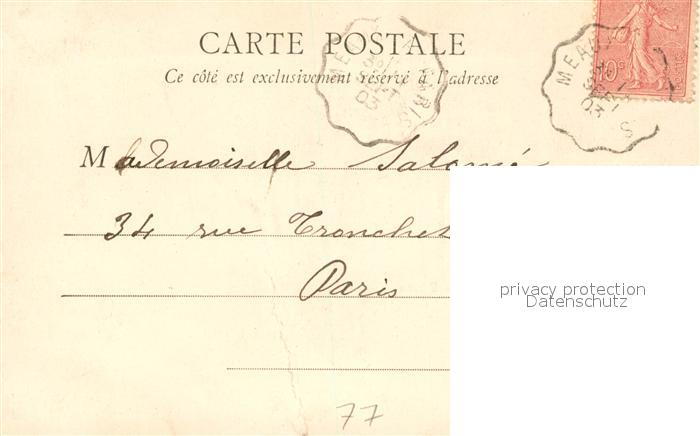 CARTE POSTALE
Ce côté est exclusivement réservé à l'adresse
MEAUX
PARIS
03
MEAUX
SEPT
03
S
10c
Mademoiselle Salomé
34 rue Tronchet
Paris
privacy protection
Datenschutz
77